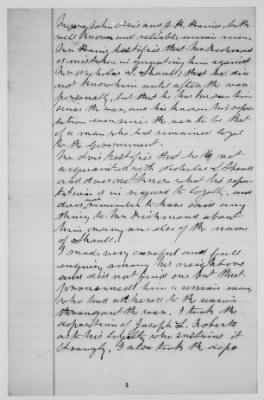 Messrs John Ovis and J. H. Harris, both
well known and reliable union men.
Mr Harris testifies that Mr Richmond
is mistaken in quoting him against
Mr Nicholas L. Shaull, that he did
not know him until after the war
personally, but that he has known him
since the war and has known his repu-
tation ever since the war to be that
of a man who had remained loyal
to the Government.
Mr Ovis testifies that he is not
acquainted with Nicholas L. Shaull
and does not know what his repu-
tation is in regard to loyalty, and
does not remember to have said any
thing to Mr Richmond about
him or any one else of the name
of Shaull.
I made very careful and full
enquiry among his neighbors
and did not find one but that
pronounced him a union man
who had adhered to the union
throughout the war. I took the
deposition of Joseph L. Roberts
as to his loyalty who sustains it
strongly. I also took the depo